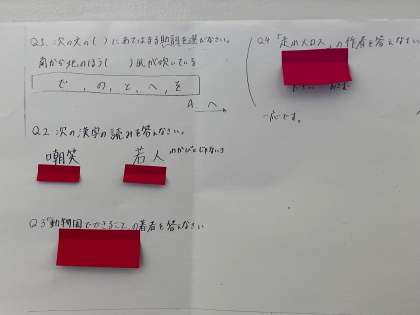 Q1. 次の文の( )にあてはまる助詞を選びなさい。
南から北のほう( )風が吹いている
で, の, と, へ, を
A へ
Q2 次の漢字の読みを答えなさい。
嘲笑 若人 わかびとじゃないよ
Q3「動物園でできること」の著者を答えなさい
Q4 「走れメロス」の作者を答えなさい
一応です。